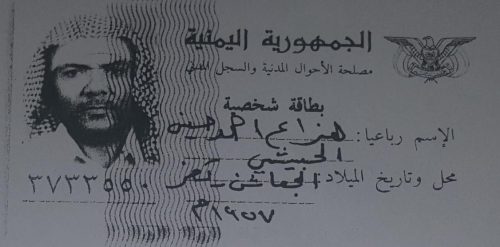 الجمهورية اليمنية
مصلحة الأحوال المدنية والسجل المدني
بطاقة شخصية
الإسم رباعيا: هزاع احمد حسن
الحبيشي
محل وتاريخ الميلاد: تعز
٣٧٣٣٥٥٠
١٩٥٧م